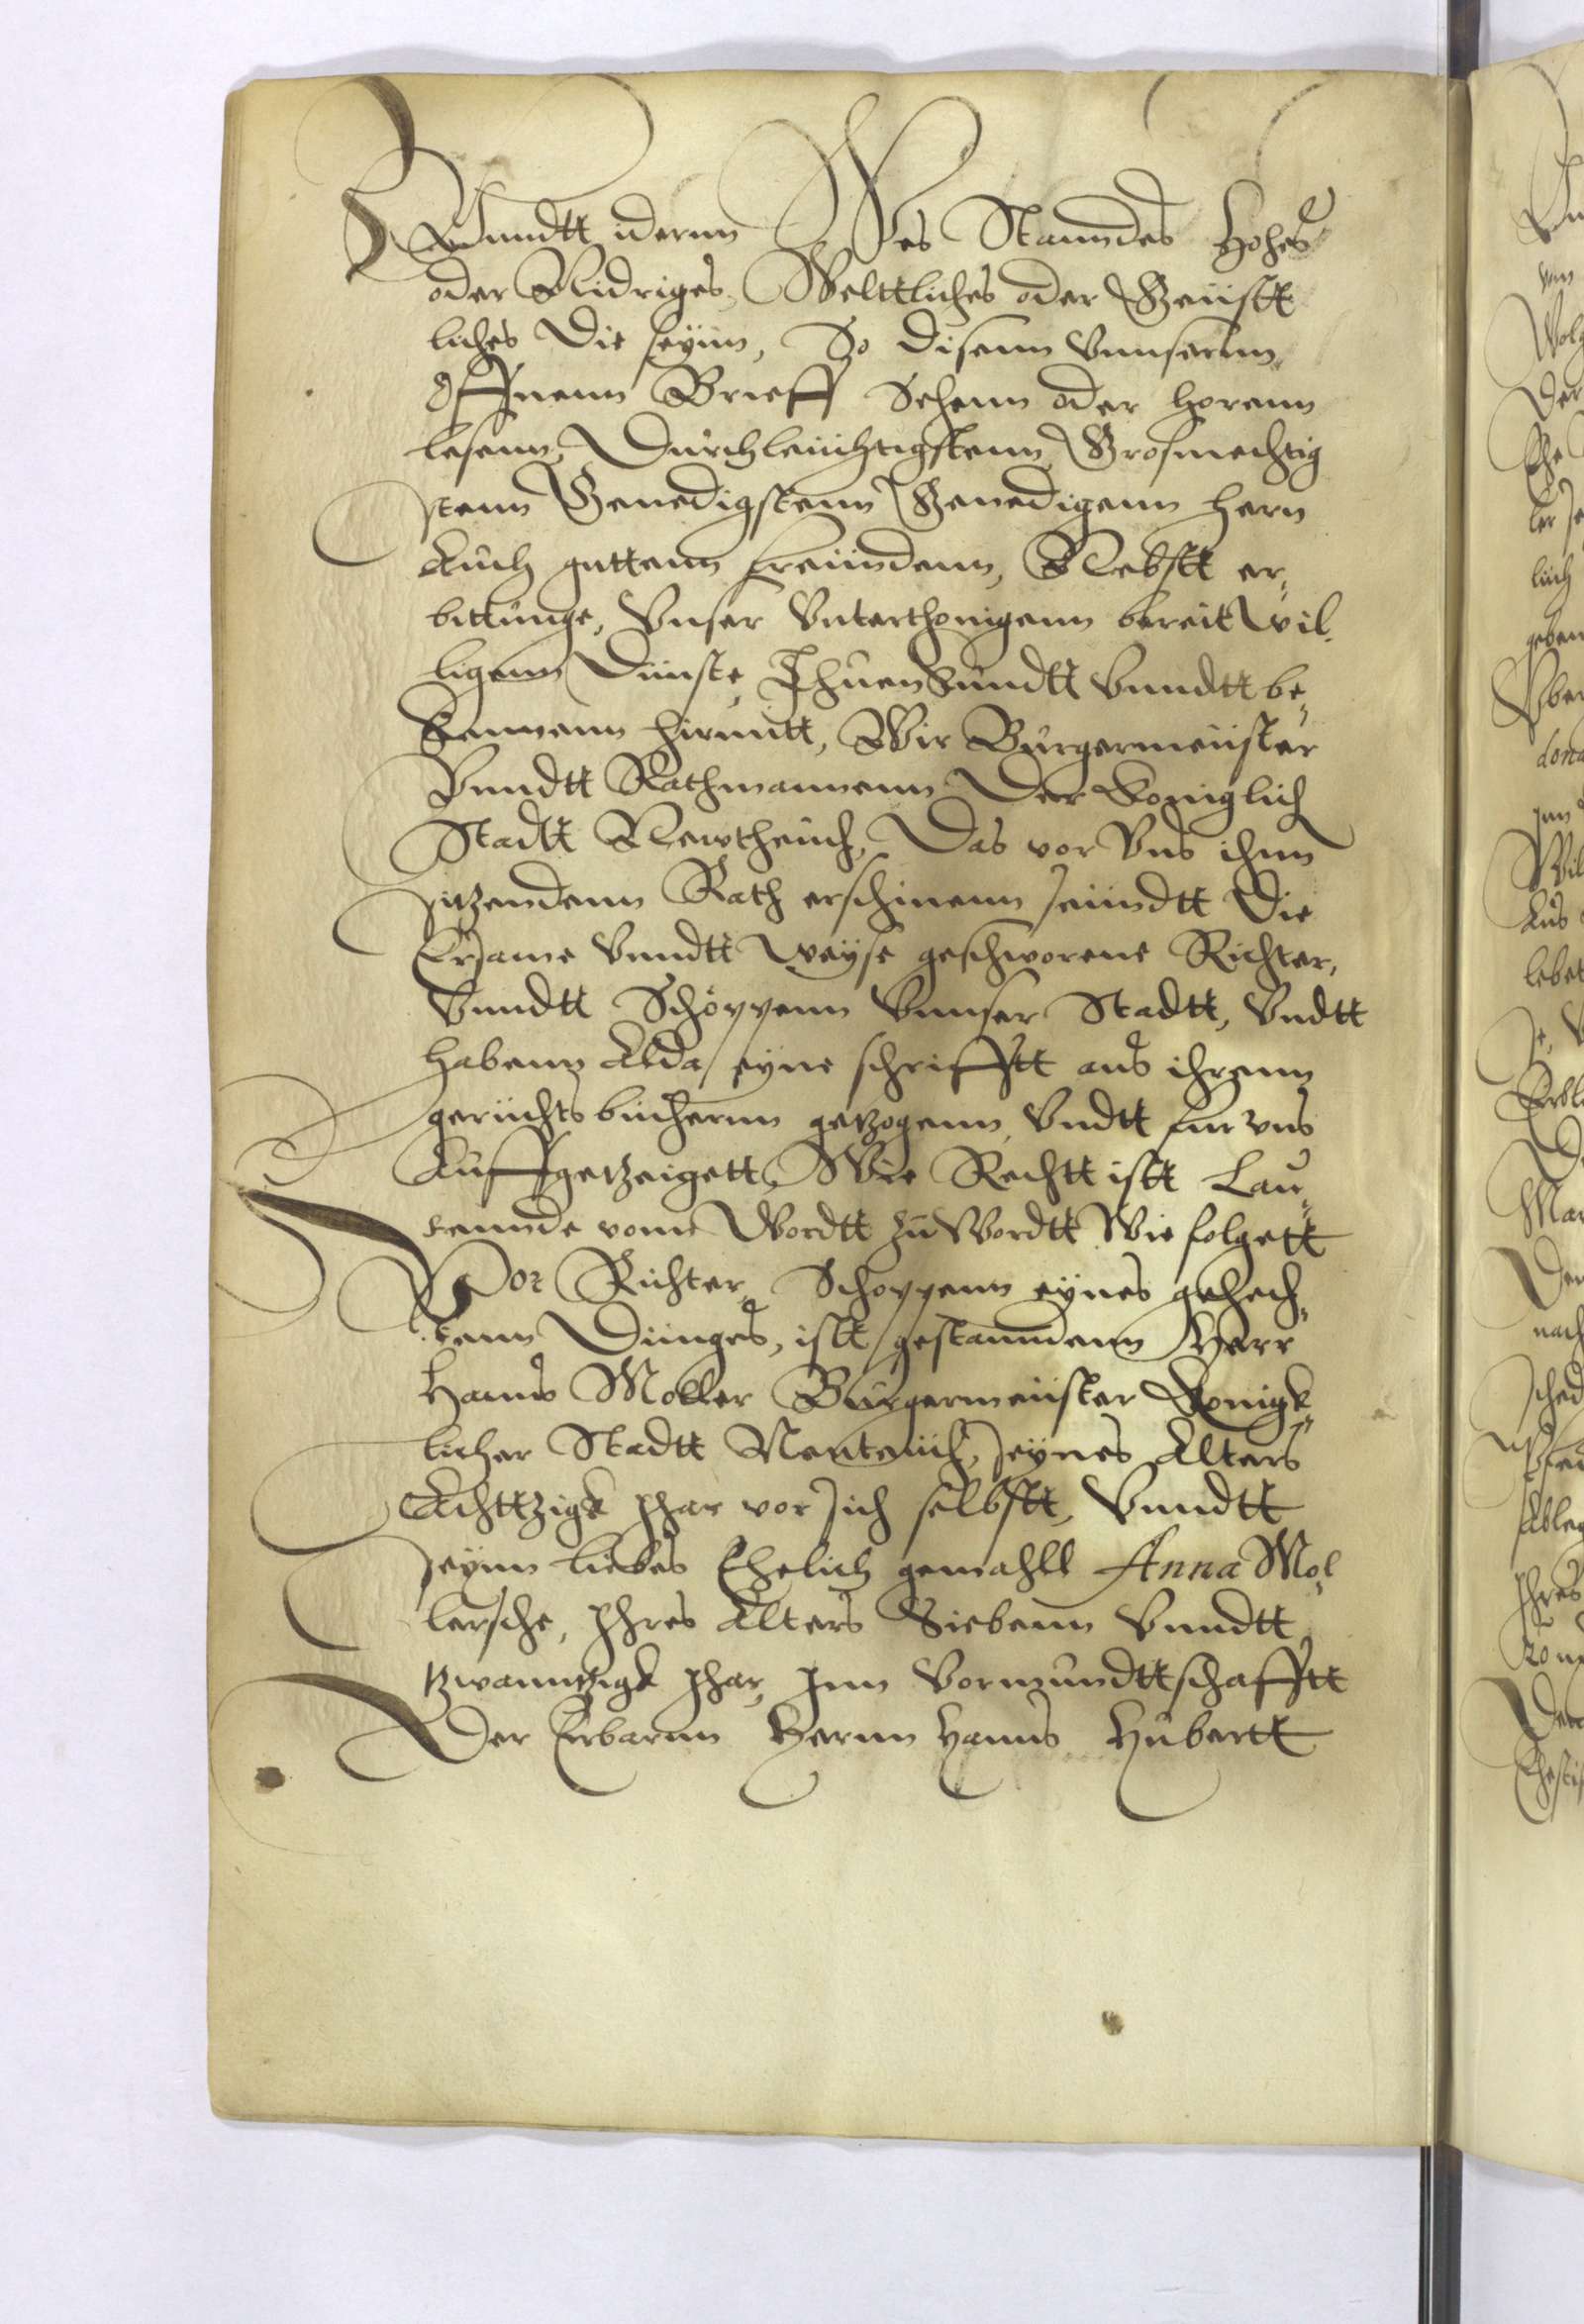 Vnndtt idernn Wes Stanndes Hohes
oder Nidriges, Welttliches oder Geiistt
liches Die seyinn, So disenn Vnnserrnn
offnenn Brieff Sehenn oder horenn
lesenn, Durchleiichtigstenn Grosmechtig
stenn Genedigstenn Genedigenn hern
Auch guttenn freiindenn, Nebstt er,
bittunge, Vnser Vnterthonigenn bereitt wil,
ligenn Diinste, Thuen Kundtt Vnndtt be,
kennenn hirmitt, Wir Burgermeiister
Vnndtt Rathmannenn Der Koniglich
Stadtt Newtheich, Das vor Vns ihnn
sitzendenn Rath erschinenn seiindtt Die
Ersame Vnndtt Weyse geschworene Richter,
Vnndtt Schöppenn Vnnser Stadtt, Vndtt
habenn Alda eyne schrifftt aus ihrenn
geriichts biichernn getzogenn, Vndtt fur vns
Auffgetzeigett, Wie Rechtt istt Lau,
tennde vonn Wordtt zu Wordtt Wie folgett
Vor Richter, Schoppenn eynes gehech,
tenn Diinges, istt gestanndenn Herr
Hanns Moller Burgermeiister Konigk,
licher Stadtt Neuteiich, seynes Alters
Achttzigk Jhar vor sich selbstt, Vnndtt
seynn liebes Ehelich gemahll Anna Mol,
lersche, Jhres Alters Siebenn Vnndtt
tzwanntzigk Jhar, Jnn Vormundttschafftt
Der Erbarnn Hernn Hanns Hubertt